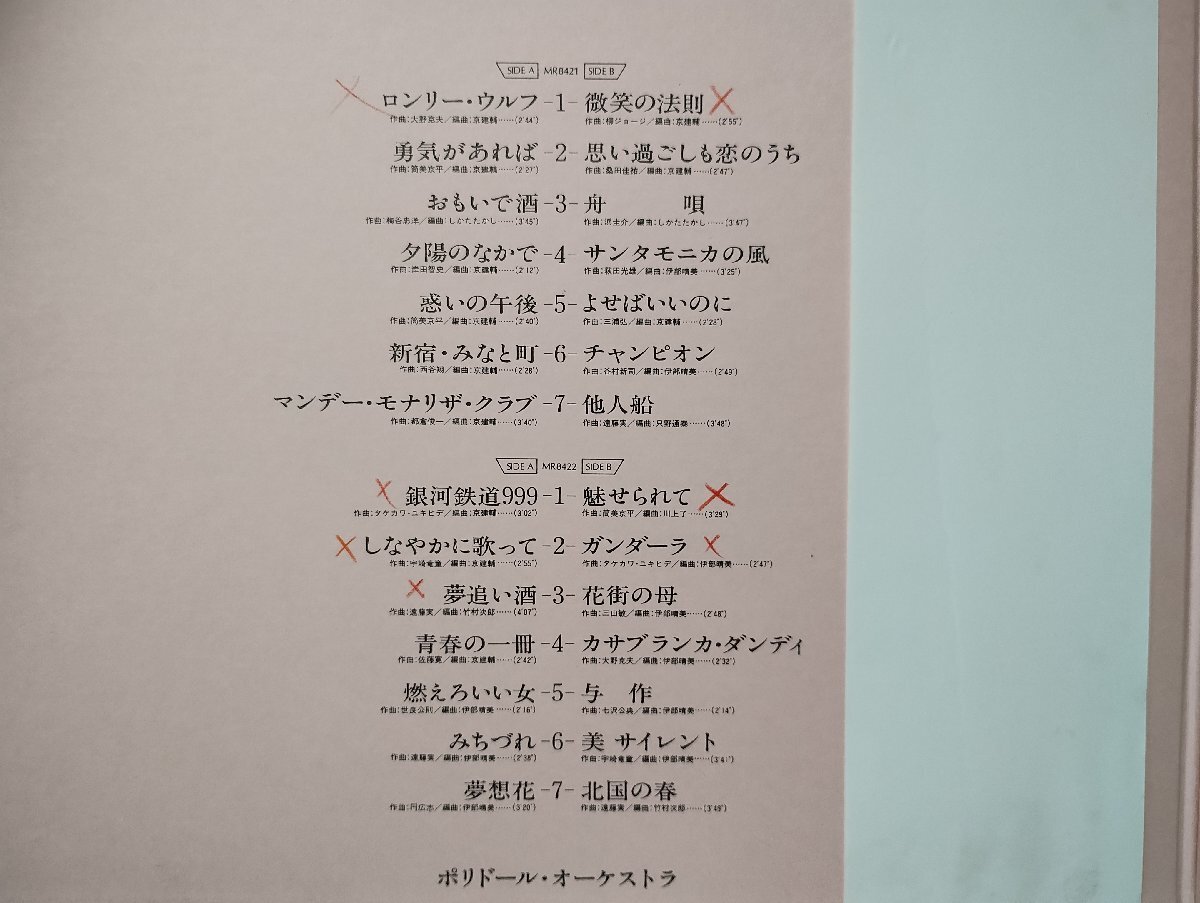 SIDE A MR8421 SIDE B
ロンリー・ウルフ -1- 微笑の法則
作曲:大野克夫/編曲:京建輔……(2'44") 作曲:柳ジョージ/編曲:京建輔……(2'55")
勇気があれば -2- 思い過ごしも恋のうち
作曲:筒美京平/編曲:京建輔……(2'27") 作曲:桑田佳祐/編曲:京建輔……(2'47")
おもいで酒 -3- 舟 唄
作曲:梅谷忠洋/編曲:しかたたかし……(3'45") 作曲:浜圭介/編曲:しかたたかし……(3'47")
夕陽のなかで -4- サンタモニカの風
作曲:岸田智史/編曲:京建輔……(2'12") 作曲:萩田光雄/編曲:伊部晴美……(3'25")
惑いの午後 -5- よせばいいのに
作曲:筒美京平/編曲:京建輔……(2'40") 作曲:三浦弘/編曲:京建輔……(2'23")
新宿・みなと町 -6- チャンピオン
作曲:西谷翔/編曲:京建輔……(2'28") 作曲:谷村新司/編曲:伊部晴美……(2'49")
マンデー・モナリザ・クラブ -7- 他人船
作曲:都倉俊一/編曲:京建輔……(3'40") 作曲:遠藤実/編曲:只野通泰……(3'48")
SIDE A MR8422 SIDE B
銀河鉄道999 -1- 魅せられて
作曲:タケカワ・ユキヒデ/編曲:京建輔……(3'02") 作曲:筒美京平/編曲:川上了……(3'29")
しなやかに歌って -2- ガンダーラ
作曲:宇崎竜童/編曲:京建輔……(2'55") 作曲:タケカワ・ユキヒデ/編曲:伊部晴美……(2'47")
夢追い酒 -3- 花街の母
作曲:遠藤実/編曲:竹村次郎……(4'07") 作曲:三山敏/編曲:伊部晴美……(2'48")
青春の一冊 -4- カサブランカ・ダンディ
作曲:佐藤寛/編曲:京建輔……(2'42") 作曲:大野克夫/編曲:伊部晴美……(2'32")
燃えろいい女 -5- 与 作
作曲:世良公則/編曲:伊部晴美……(2'16") 作曲:七沢公典/編曲:伊部晴美……(2'14")
みちづれ -6- 美 サイレント
作曲:遠藤実/編曲:伊部晴美……(2'38") 作曲:宇崎竜童/編曲:伊部晴美……(3'41")
夢想花 -7- 北国の春
作曲:円広志/編曲:伊部晴美……(3'20") 作曲:遠藤実/編曲:竹村次郎……(3'49")
ポリドール・オーケストラ